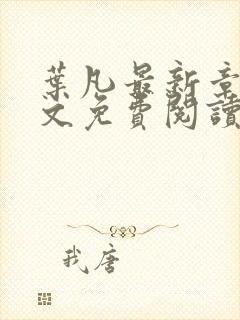 葉凡最新章
文免費閱讀
我唐